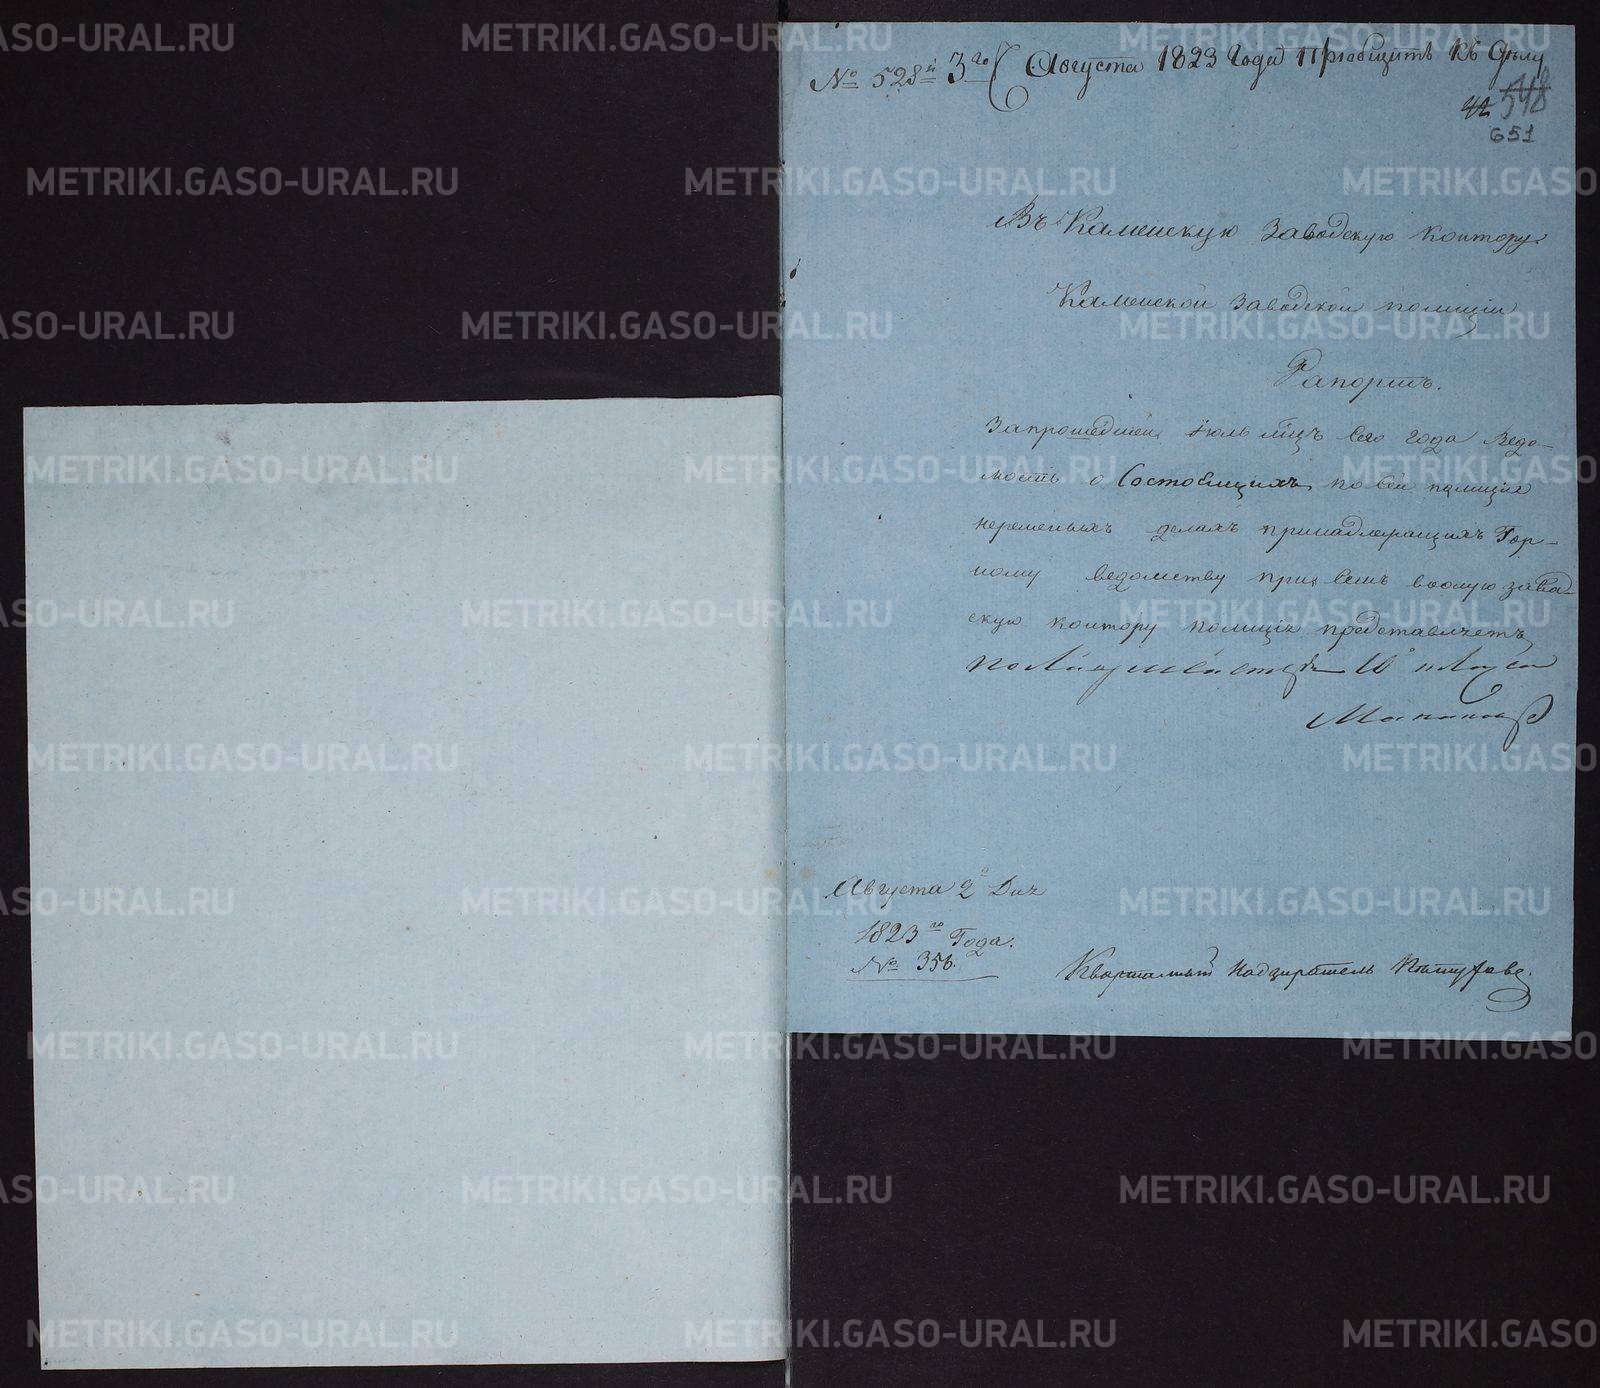 № 528й 3го Августа 1823 Года Приобщить Къ Делу
548
651
Въ Каменскую Заводскую Контору.
Каменской Заводской полиции
Рапортъ.
Запрошедшей июль мцъ сего года Ведо-
мость о Состоящихъ по сей полиции
нерешеныхъ делахъ принадлежащихъ Гор-
ному ведомству при семъ вооную завод-
скую контору полиция представляетъ
Августа 2 Дня
1823го Года.
№ 356.
Квартальный Надзиратель
METRIKI.GASO-URAL.RU